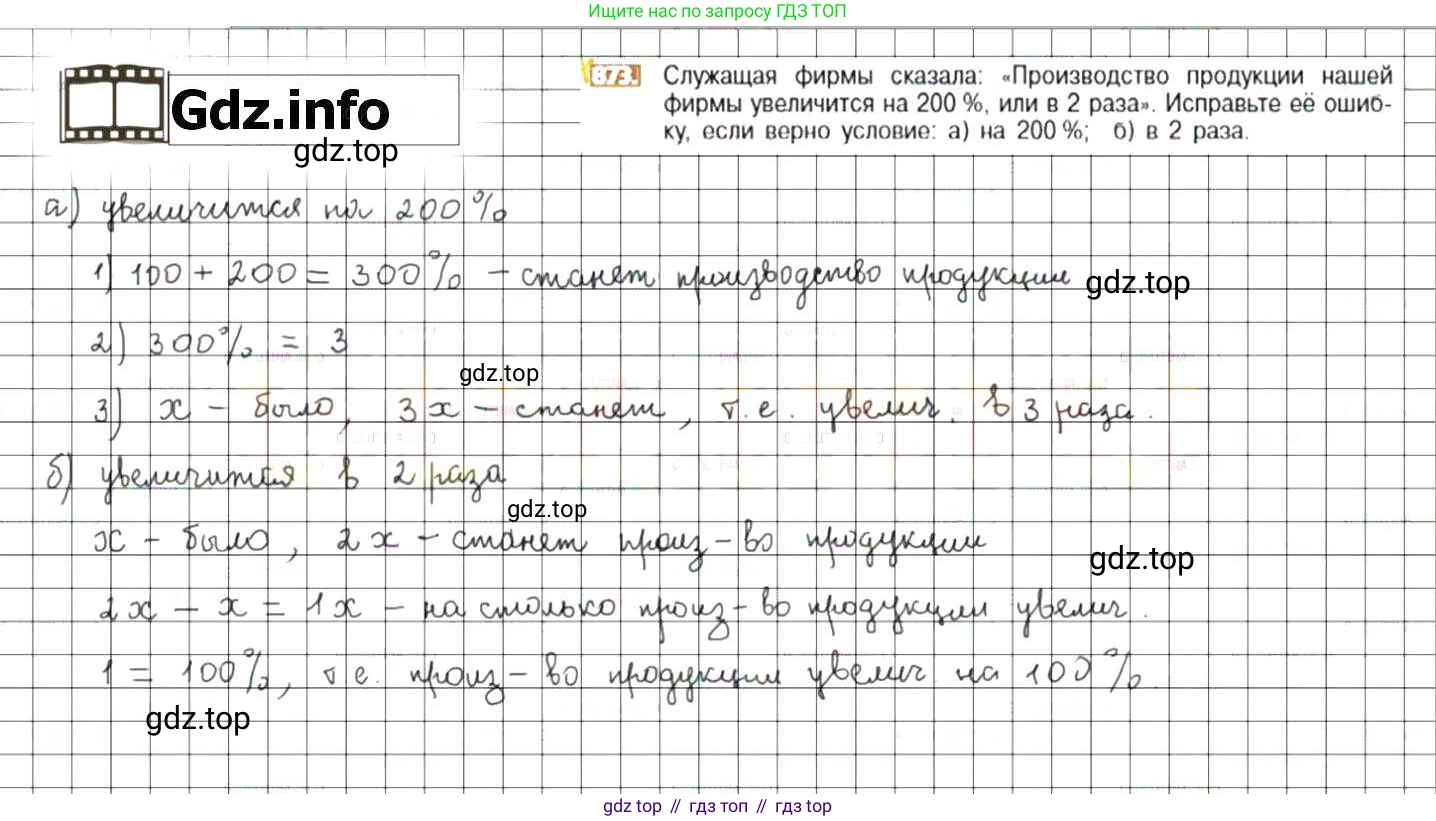 Ищите нас по запросу ГДЗ ТОП
Gdz.info
gdz.top
873. Служащая фирмы сказала: «Производство продукции нашей
фирмы увеличится на 200 %, или в 2 раза». Исправьте её ошиб-
ку, если верно условие: а) на 200 %; б) в 2 раза.
а) увеличится на 200%
1) 100 + 200 = 300% – станет производство продукции
gdz.top
2) 300% = 3
gdz.top
3) х – было, 3х – станет, т.е. увелич. в 3 раза.
б) увеличится в 2 раза
gdz.top
х – было, 2х – станет произ-во продукции
gdz.top
2х – х = 1х – на столько произ-во продукции увелич.
1 = 100%, т.е. произ-во продукции увелич на 100%.
gdz.top
gdz top // гдз топ // gdz top